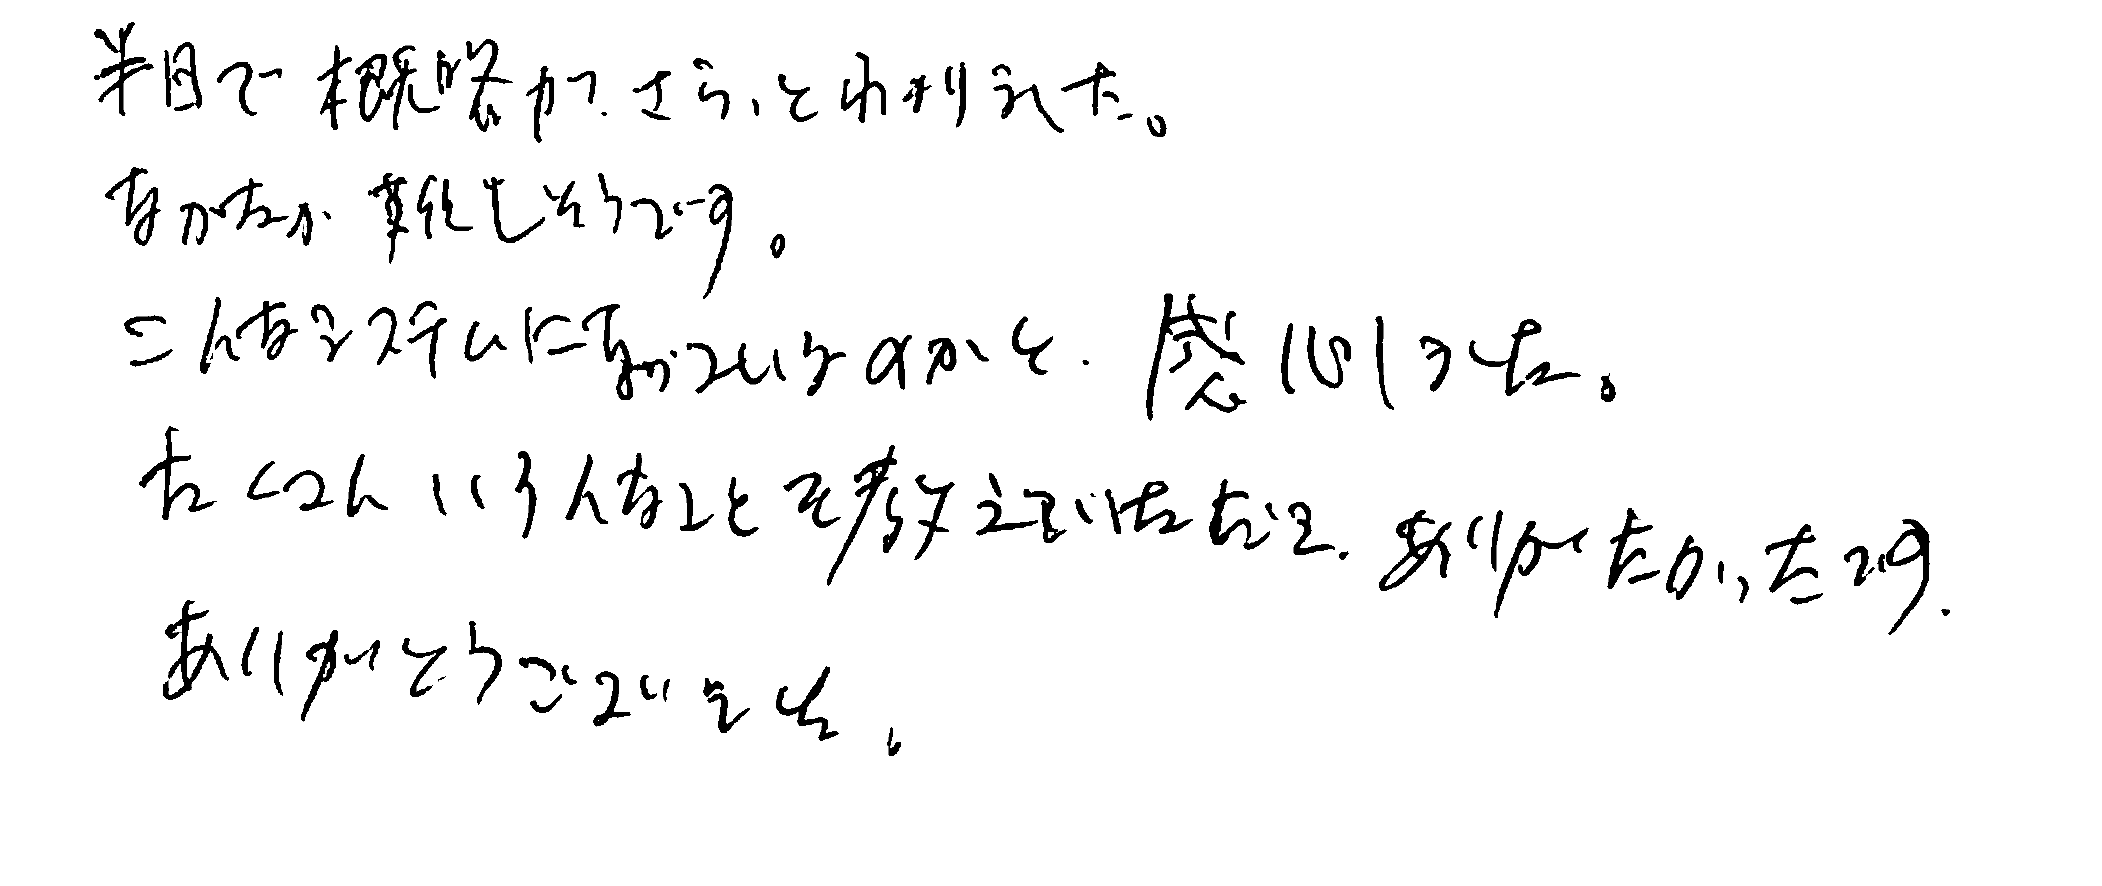 半日で概略が、さらっとわかりました。
なかなか難しそうです。
こんなシステムになっているのかと、感心しました。
たくさんいろんなことを教えていただき、ありがたかったです。
ありがとうございました。